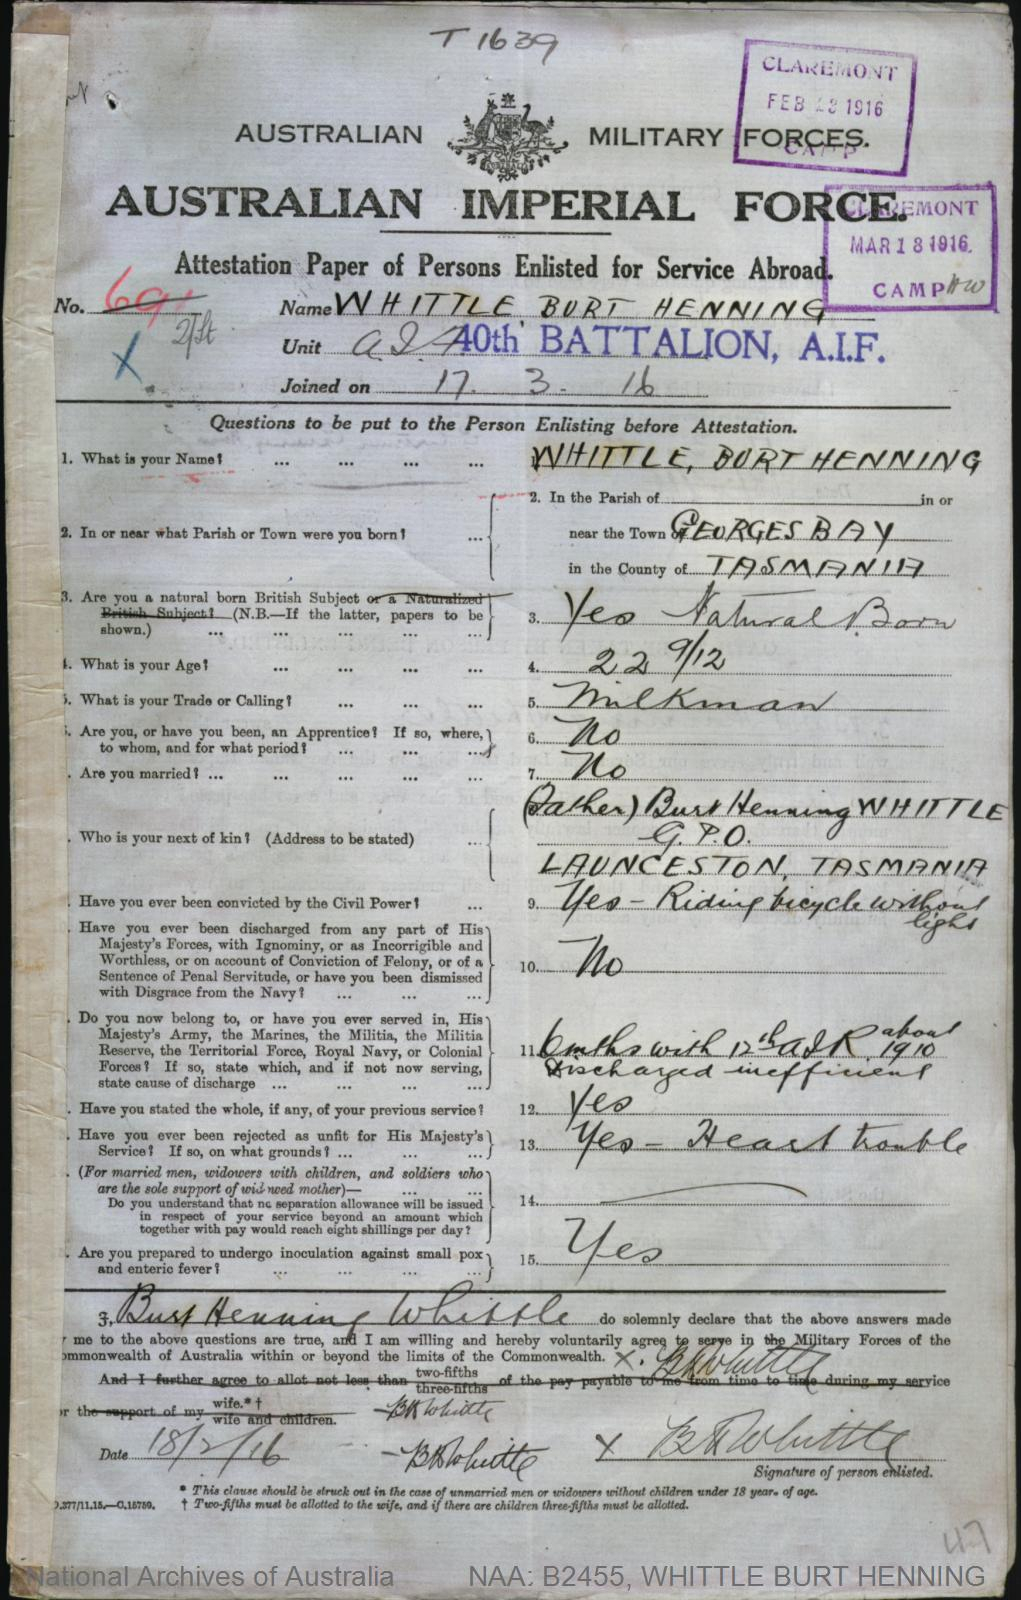 T 1639
CLAREMONT
FEB 1916
CAMP
AUSTRALIAN MILITARY FORCES.
AUSTRALIAN IMPERIAL FORCE.
CLAREMONT
MAR 18 1916.
CAMP
Attestation Paper of Persons Enlisted for Service Abroad.
No. 691 Name WHITTLE BURT HENNING
Unit A.I.F. 40th BATTALION, A.I.F.
X
Joined on 17. 3. 16
Questions to be put to the Person Enlisting before Attestation.
1. What is your Name? ... ... ... ... 1. WHITTLE, BURT HENNING
2. In the Parish of in or
2. In or near what Parish or Town were you born? ... near the Town of GEORGES BAY
in the County of TASMANIA
3. Are you a natural born British Subject or a Naturalized
British Subject? (N.B.—If the latter, papers to be 3. Yes Natural Born
shown.) ... ... ... ... ...
4. What is your Age? ... ... ... ... 4. 22 9/12
5. What is your Trade or Calling? ... ... ... 5. Milkman
6. Are you, or have you been, an Apprentice? If so, where,
to whom, and for what period? ... ... ... 6. No
. Are you married? ... ... ... ... ... 7. No
(Father) Burt Henning WHITTLE
. Who is your next of kin? (Address to be stated) ... G.P.O.
LAUNCESTON, TASMANIA
. Have you ever been convicted by the Civil Power? ... 9. Yes – Riding bicycle without
light
. Have you ever been discharged from any part of His
Majesty's Forces, with Ignominy, or as Incorrigible and
Worthless, or on account of Conviction of Felony, or of a 10. No
Sentence of Penal Servitude, or have you been dismissed
with Disgrace from the Navy? ... ... ...
. Do you now belong to, or have you ever served in, His
Majesty's Army, the Marines, the Militia, the Militia about
Reserve, the Territorial Force, Royal Navy, or Colonial 11. 6 mths with 12th A.I.R. 1910
Forces? If so, state which, and if not now serving, Discharged inefficient
state cause of discharge ... ... ... ...
. Have you stated the whole, if any, of your previous service? 12. Yes
. Have you ever been rejected as unfit for His Majesty's
Service? If so, on what grounds? ... ... ... 13. Yes – Heart trouble
. (For married men, widowers with children, and soldiers who
are the sole support of widowed mother)— ... ...
Do you understand that no separation allowance will be issued 14.
in respect of your service beyond an amount which
together with pay would reach eight shillings per day?
. Are you prepared to undergo inoculation against small pox
and enteric fever? ... ... ... ... 15. Yes
I, Burt Henning Whittle do solemnly declare that the above answers made
me to the above questions are true, and I am willing and hereby voluntarily agree to serve in the Military Forces of the
ommonwealth of Australia within or beyond the limits of the Commonwealth. X. B H Whittle
And I further agree to allot not less than two-fifths
three-fifths of the pay payable to me from time to time during my service
or the support of my wife.*†
wife and children. – B H Whittle
Date 18/2/16 – B H Whittle X B H Whittle
Signature of person enlisted.
* This clause should be struck out in the case of unmarried men or widowers without children under 18 years of age.
D.377/11.15.—C.15759. † Two-fifths must be allotted to the wife, and if there are children three-fifths must be allotted.
47
National Archives of Australia NAA: B2455, WHITTLE BURT HENNING